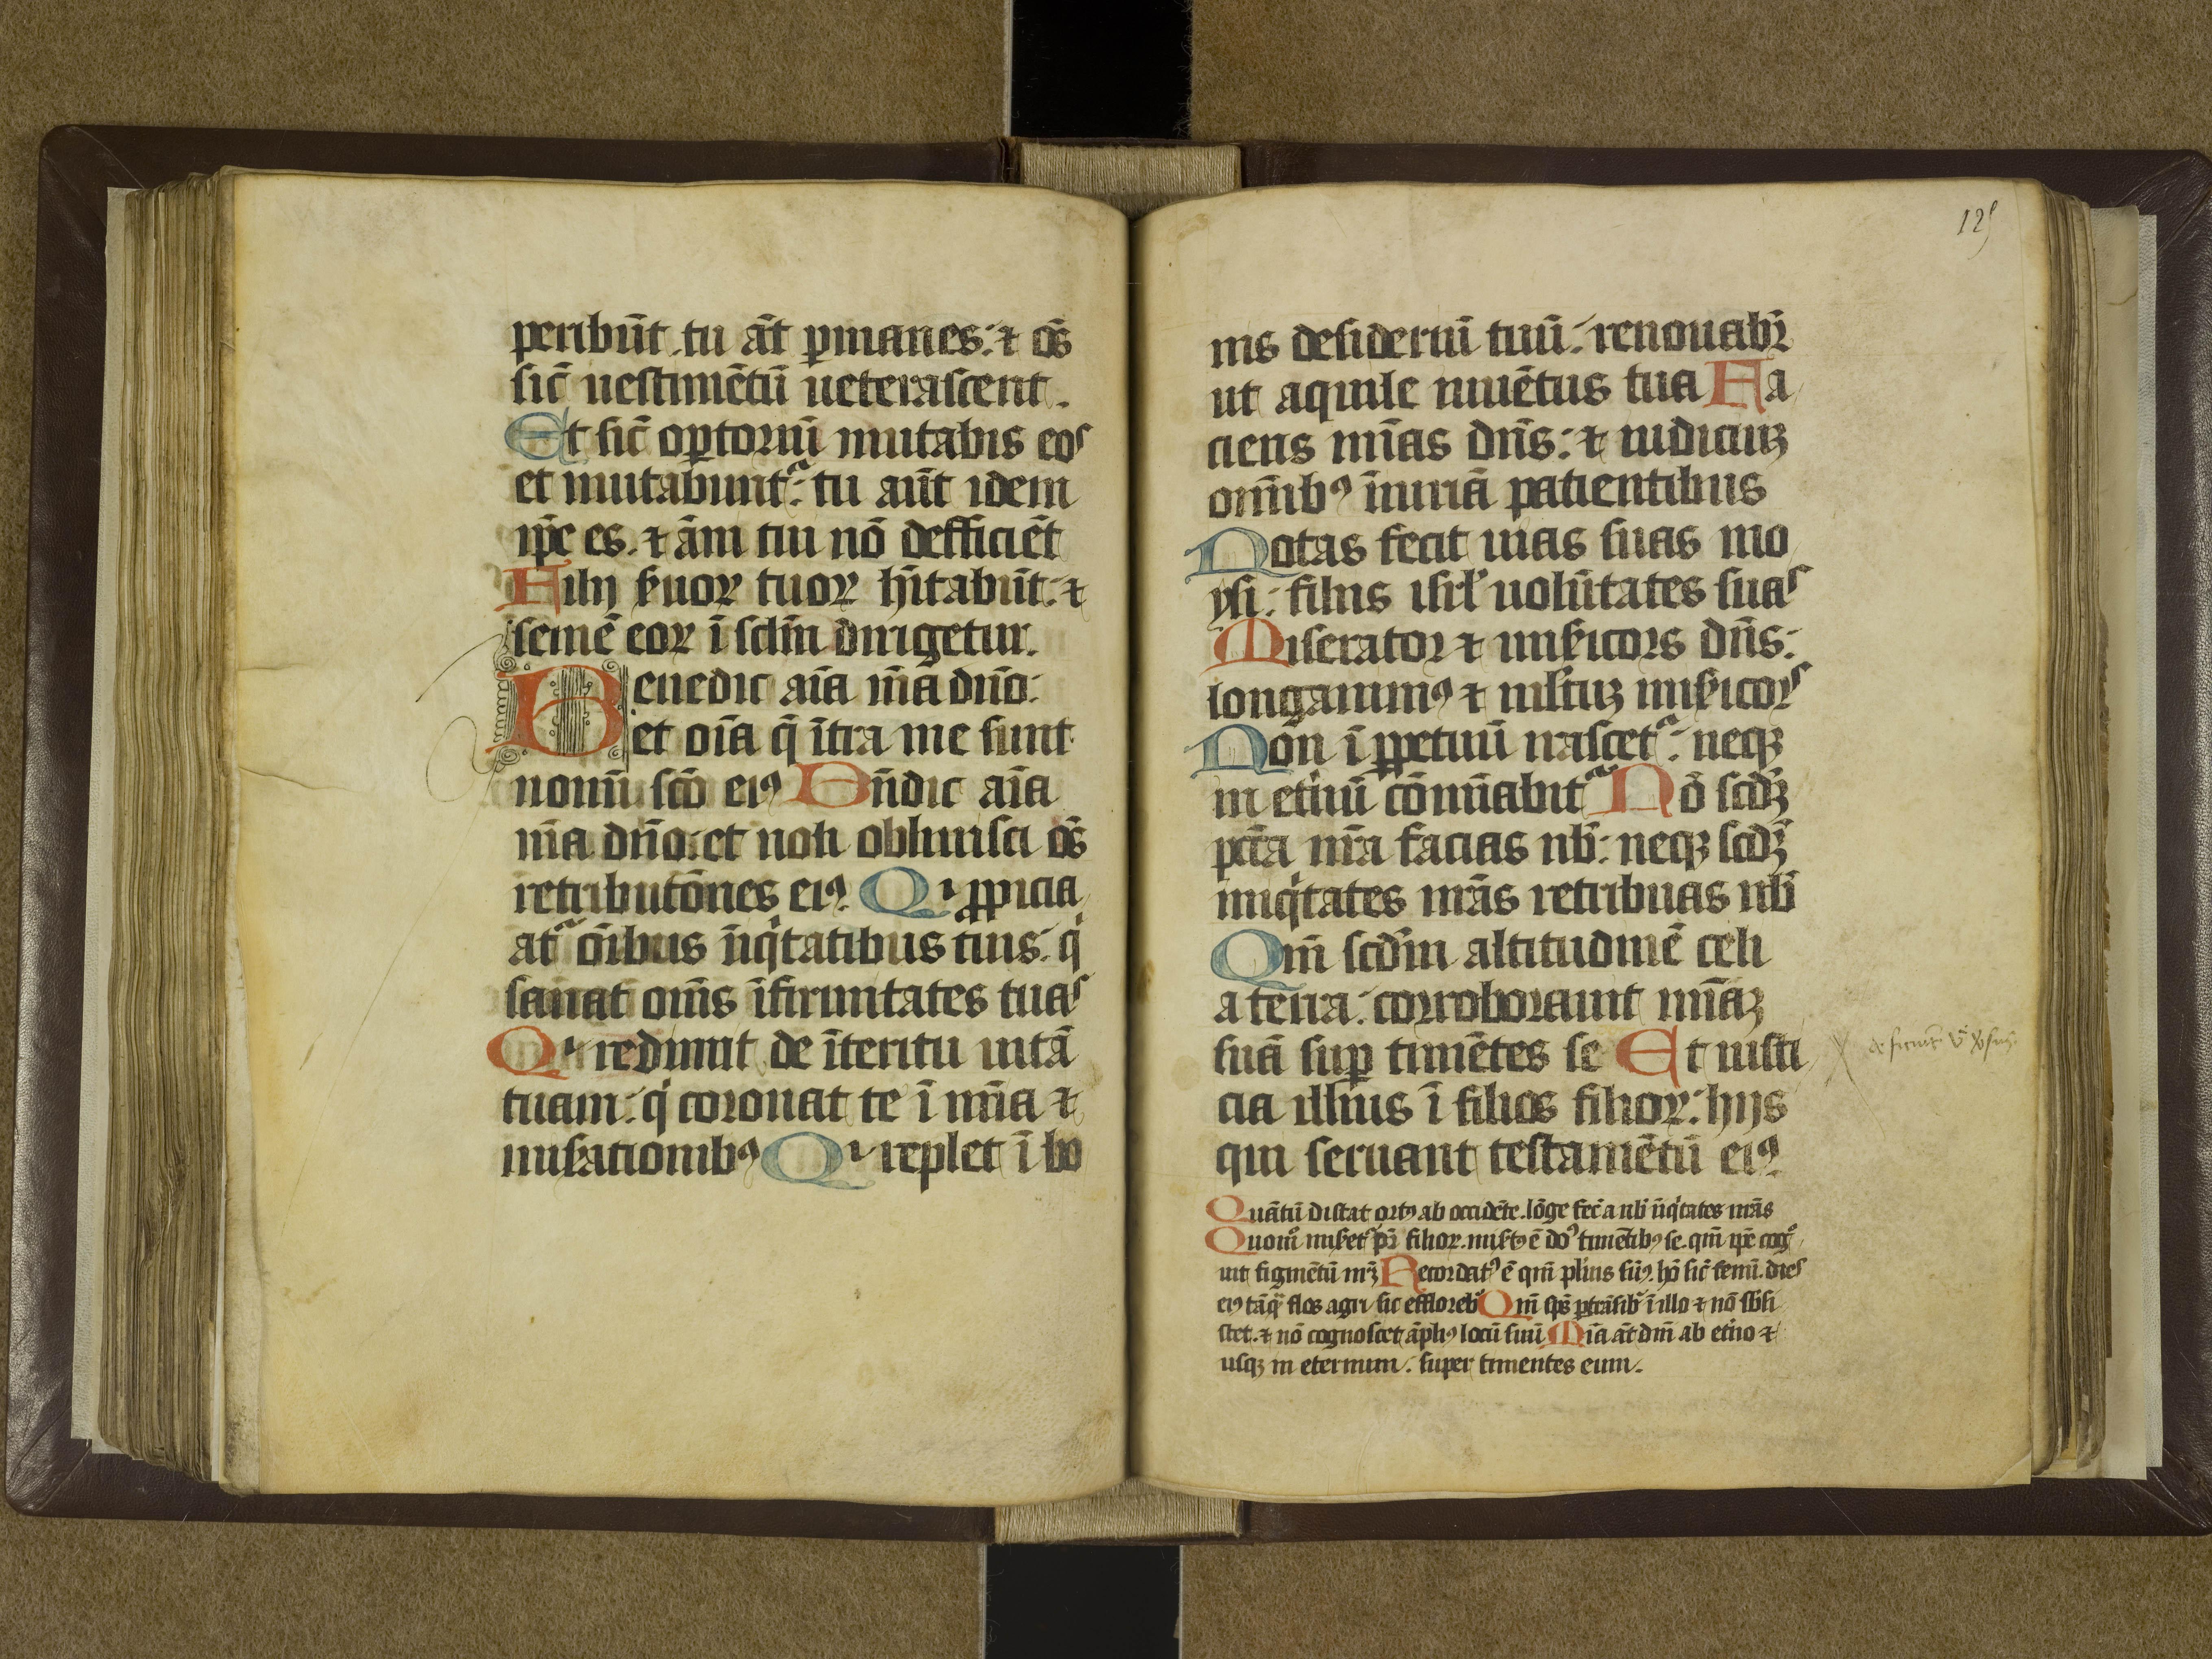 peribūt. tu āt ꝑmanes: ⁊ oṁs
sic̄ uestimētū ueterascent.
Et sic̄ oꝑtoriū mutabis eos
et mutabuntᷓ: tu aūt idem
ip̄e es. ⁊ āni tui nō defficiēt
Filij ẜuoꝝ tuoꝝ hītabūt: ⁊
semē eoꝝ ī sc̄lm dirigetur.
Benedic aīa m̄a dn̄o:
et oīa q̄ ītra me sunt
nomī sc̄o eiꝰ Bn̄dic aīa
m̄a dn̄o: et noli obliuisci oṁs
retributōnes eiꝰ. Qi ꝓpicia
atᷓ oībus īiqͥtatibus tuis: qͥ
sanat om̄s īfirmitates tuas
Qi redimit de īteritu uitā
tuam: qͥ coronat te ī mīa ⁊
miẜationibꝰ Qi replet ī bo
125
nis desideriū tuū: renouabr̄
ut aquile iuuētus tua Fa
ciens mīas dn̄s: ⁊ iudiciuꝫ
omībꝰ īiuriā patientibus
Notas fecit uias suas mo
ysi: filiis isrl̄ uolūtates suas
Miserator ⁊ miẜicors dn̄s:
longanimꝰ ⁊ mltuꝫ miẜicors
Non ī ꝑpetuū irascetᷓ: neqꝫ
in etͥnū cōmīabitᷓ Nō scd̄ꝫ
pctā nr̄a facias nb̄: neqꝫ scd̄ꝫ
iniqͥtates nr̄as retribuas nb̄
Qm̄ scd̄m altitudinē celi
a terra: corroborauit mīaꝫ
suā suꝑ timētes se Et iusti
cia illius ī filios filioꝝ: hijs
qui seruant testamētū eiꝰ.
Quātū distat ortꝰ ab occidēte. lōge fec̄ a nb̄ īiqͥtates nr̄as
Quomͦ miẜetᷓ pr̄ filioꝝ. miẜtꝰ ē doꝰ timētibꝰ se. qm̄ ip̄e cogͦ
uit figmētū nr̄ꝫ Recordatꝰ ē qm̄ plūis sūꝰ. hō sic̄ fenū. dies
eiꝰ tāqᷓ flos agri sic effloreb̄ Qm̄ sp̄s ꝑtrāsib̄ ī illo ⁊ nō sb̄si
stet. ⁊ nō cognoscet āpliꝰ locū suū Mīa āt dn̄i ab etͥno ⁊
usqꝫ in eternum: super timentes eum.